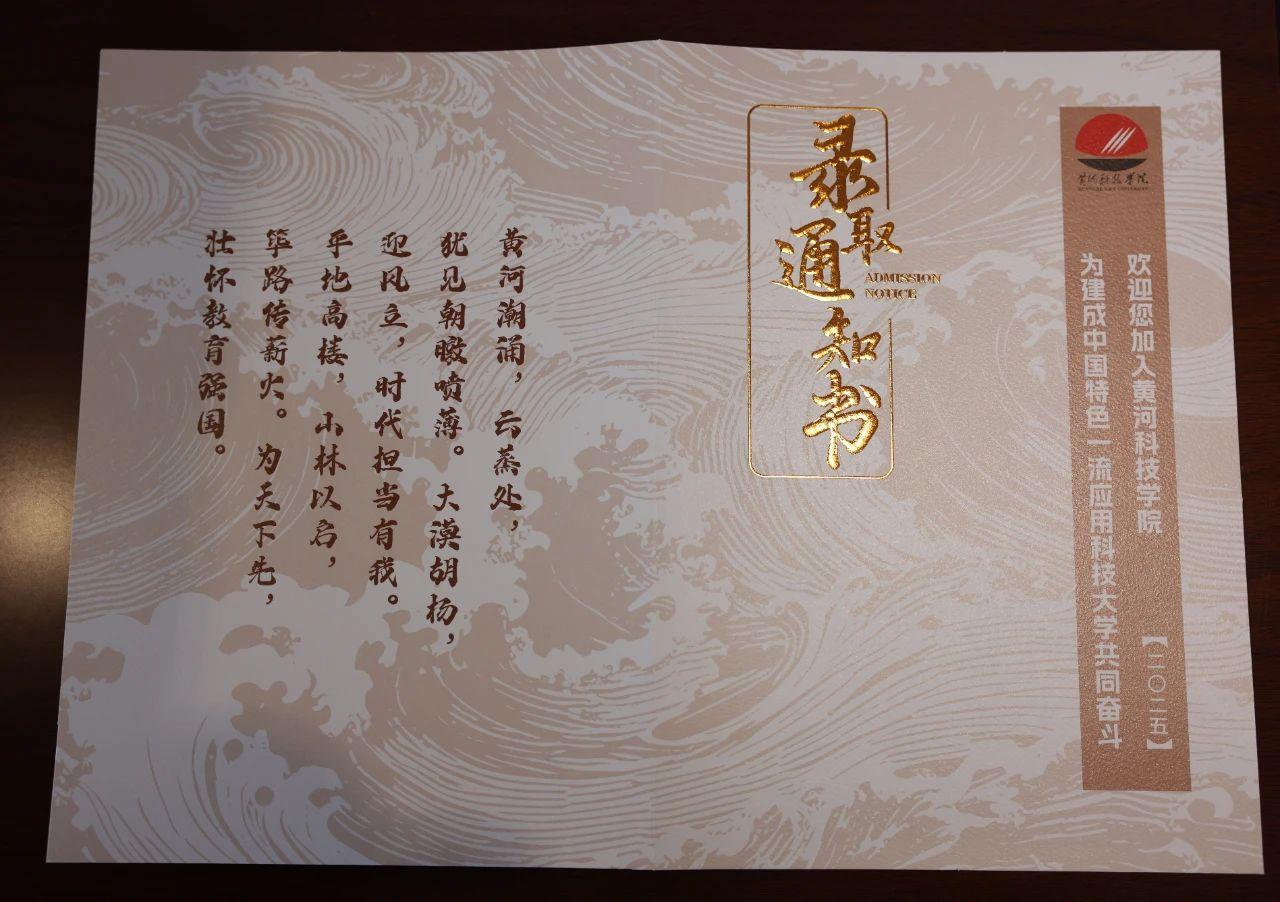 黄河科技学院
欢迎您加入黄河科技学院
【二〇二五】
为建成中国特色一流应用科技大学共同奋斗
录取通知书
ADMISSION
NOTICE
黄河潮涌，云蒸处，
犹见朝暾喷薄。大漠胡杨，
迎风立，时代担当有我。
平地高楼，小林以启，
筚路传薪火。为天下先，
壮怀教育强国。